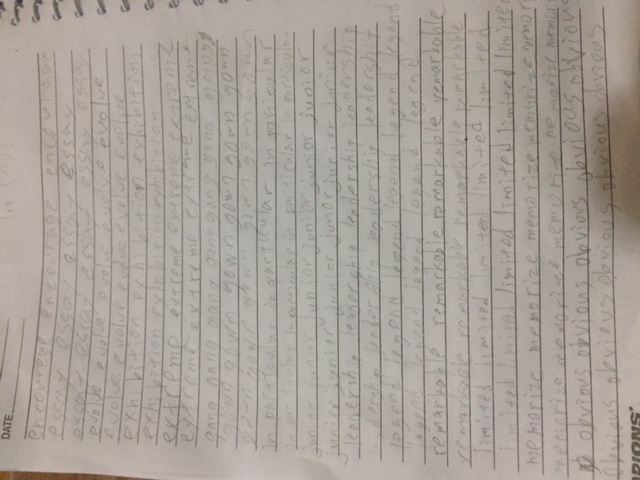 DATE
encourage encourage encourage
essay essay essay essay
essay essay essay essay essay
evolve evolve evolve evolve
evolve evolve evolve evolve
exhibition exhibition exhibition
exhibition exhibition exhibition
extreme extreme extreme extreme
extreme extreme extreme
gang gang gang gang gang gang
gown gown gown gown gown
gown gown gown gown gown
in particular in particular in particular
in particular in particular in particular in particular
junior junior junior junior junior
junior junior junior junior junior junior
leadership leadership leadership leadership
leadership leadership leadership leadership
legend legend legend legend legend
legend legend legend legend legend
remarkable remarkable remarkable remarkable
remarkable remarkable remarkable remarkable
limited limited limited limited limited
limited limited limited limited limited
memorize memorize memorize memorize memor
memorize memorize memorize memorize
obvious obvious obvious obvious obvious
obvious obvious obvious obvious